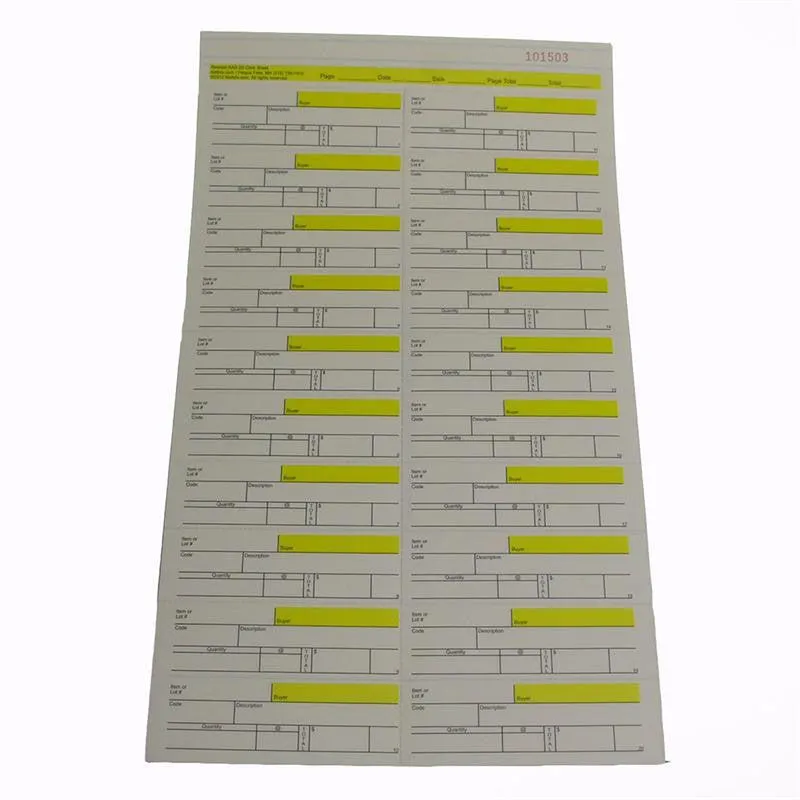 101503
Page Date Sale Page Total Total
Item or Buyer
Lot #
Code Description
Quantity @ TOTAL $ 1
Item or Buyer
Lot #
Code Description
Quantity @ TOTAL $ 2
Item or Buyer
Lot #
Code Description
Quantity @ TOTAL $ 3
Item or Buyer
Lot #
Code Description
Quantity @ TOTAL $ 4
Item or Buyer
Lot #
Code Description
Quantity @ TOTAL $ 5
Item or Buyer
Lot #
Code Description
Quantity @ TOTAL $ 6
Item or Buyer
Lot #
Code Description
Quantity @ TOTAL $ 7
Item or Buyer
Lot #
Code Description
Quantity @ TOTAL $ 8
Item or Buyer
Lot #
Code Description
Quantity @ TOTAL $ 9
Item or Buyer
Lot #
Code Description
Quantity @ TOTAL $ 10
Item or Buyer
Lot #
Code Description
Quantity @ TOTAL $ 11
Item or Buyer
Lot #
Code Description
Quantity @ TOTAL $ 12
Item or Buyer
Lot #
Code Description
Quantity @ TOTAL $ 13
Item or Buyer
Lot #
Code Description
Quantity @ TOTAL $ 14
Item or Buyer
Lot #
Code Description
Quantity @ TOTAL $ 15
Item or Buyer
Lot #
Code Description
Quantity @ TOTAL $ 16
Item or Buyer
Lot #
Code Description
Quantity @ TOTAL $ 17
Item or Buyer
Lot #
Code Description
Quantity @ TOTAL $ 18
Item or Buyer
Lot #
Code Description
Quantity @ TOTAL $ 19
Item or Buyer
Lot #
Code Description
Quantity @ TOTAL $ 20